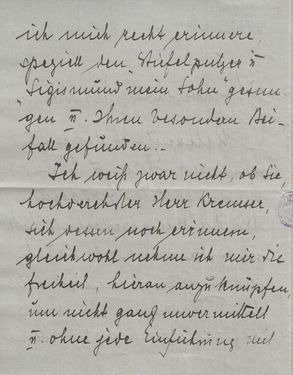 ich mich recht erinnere,
speziell den „Stiefelputzer" u.
„Sigismund mein Sohn" gesun-
gen u. Ihren besondern Bei-
fall gefunden.-
Ich weiß zwar nicht, ob Sie,
hochverehrter Herr Kremser,
sich dessen noch erinnern,
gleichwohl nehme ich mir die
Freiheit, hieran anzuknüpfen,
um nicht ganz unvermittelt
u. ohne jede Einführung mit